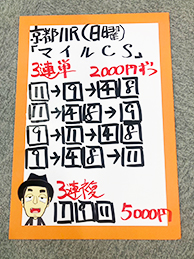 京都11R(日曜)
「マイルCS」
3連単 2000円ずつ
11→9→4 8
11→4 8→9
9→11→4 8
9→4 8→11
3連複
9 11 5000円